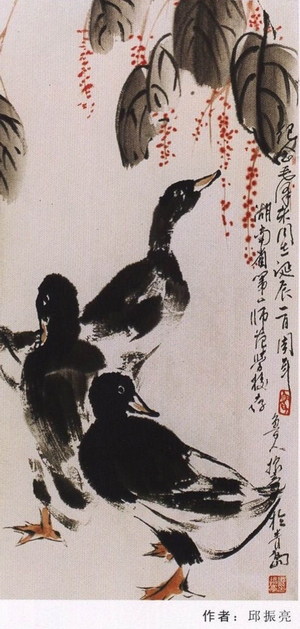 纪念毛泽东同志诞辰一百周年
湖南省第一师范学校存
鲁人振亮於青岛
作者：邱振亮